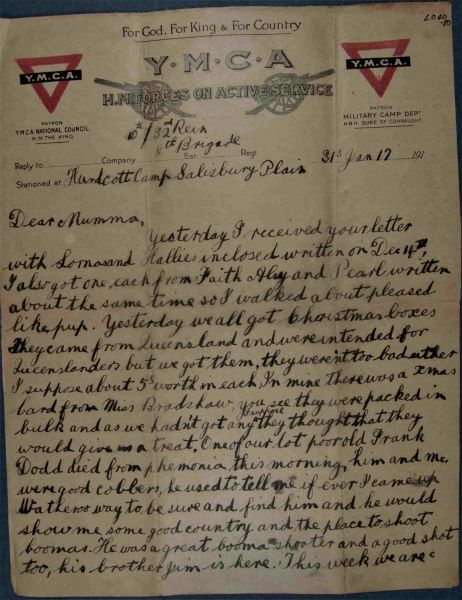 LO60
-80
For God. For King & For Country
Y.M.C.A.
Y·M·C·A
Y.M.C.A.
H.M. FORCES ON ACTIVE SERVICE
PATRON
Y.M.C.A. NATIONAL COUNCIL.
H.M. THE KING.
PATRON
MILITARY CAMP DEPT
H.R.H. DUKE OF CONNAUGHT.
10th/32nd Rein
8th Brigade
Reply to Company Bat. Regt 31st Jan 17 191
Stationed at Hurdcott Camp Salisbury Plain
Dear Mumma,
Yesterday I received your letter
with Lorna and Hallies inclosed written on Dec 14th,
I also got one, each from Faith Aley and Pearl written
about the same time so I walked about pleased
like pup. Yesterday we all got Christmas boxes
they came from Queensland and were intended for
Queenslanders but we got them, they weren't too bad either
I suppose about 5s worth in each. In mine there was a Xmas
card from Miss Bradshaw, you see they were packed in
bulk and as we hadn't got any I suppose they thought that they
would give us a treat. One of our lot poor old Frank
Dodd died from phemonia this morning, him and me
were good cobbers, he used to tell me if ever I came up
Watheroo way to be sure and find him and he would
show me some good country and the place to shoot
boomas. He was a great booma shooter and a good shot
too, his brother Jim is here. This week we are